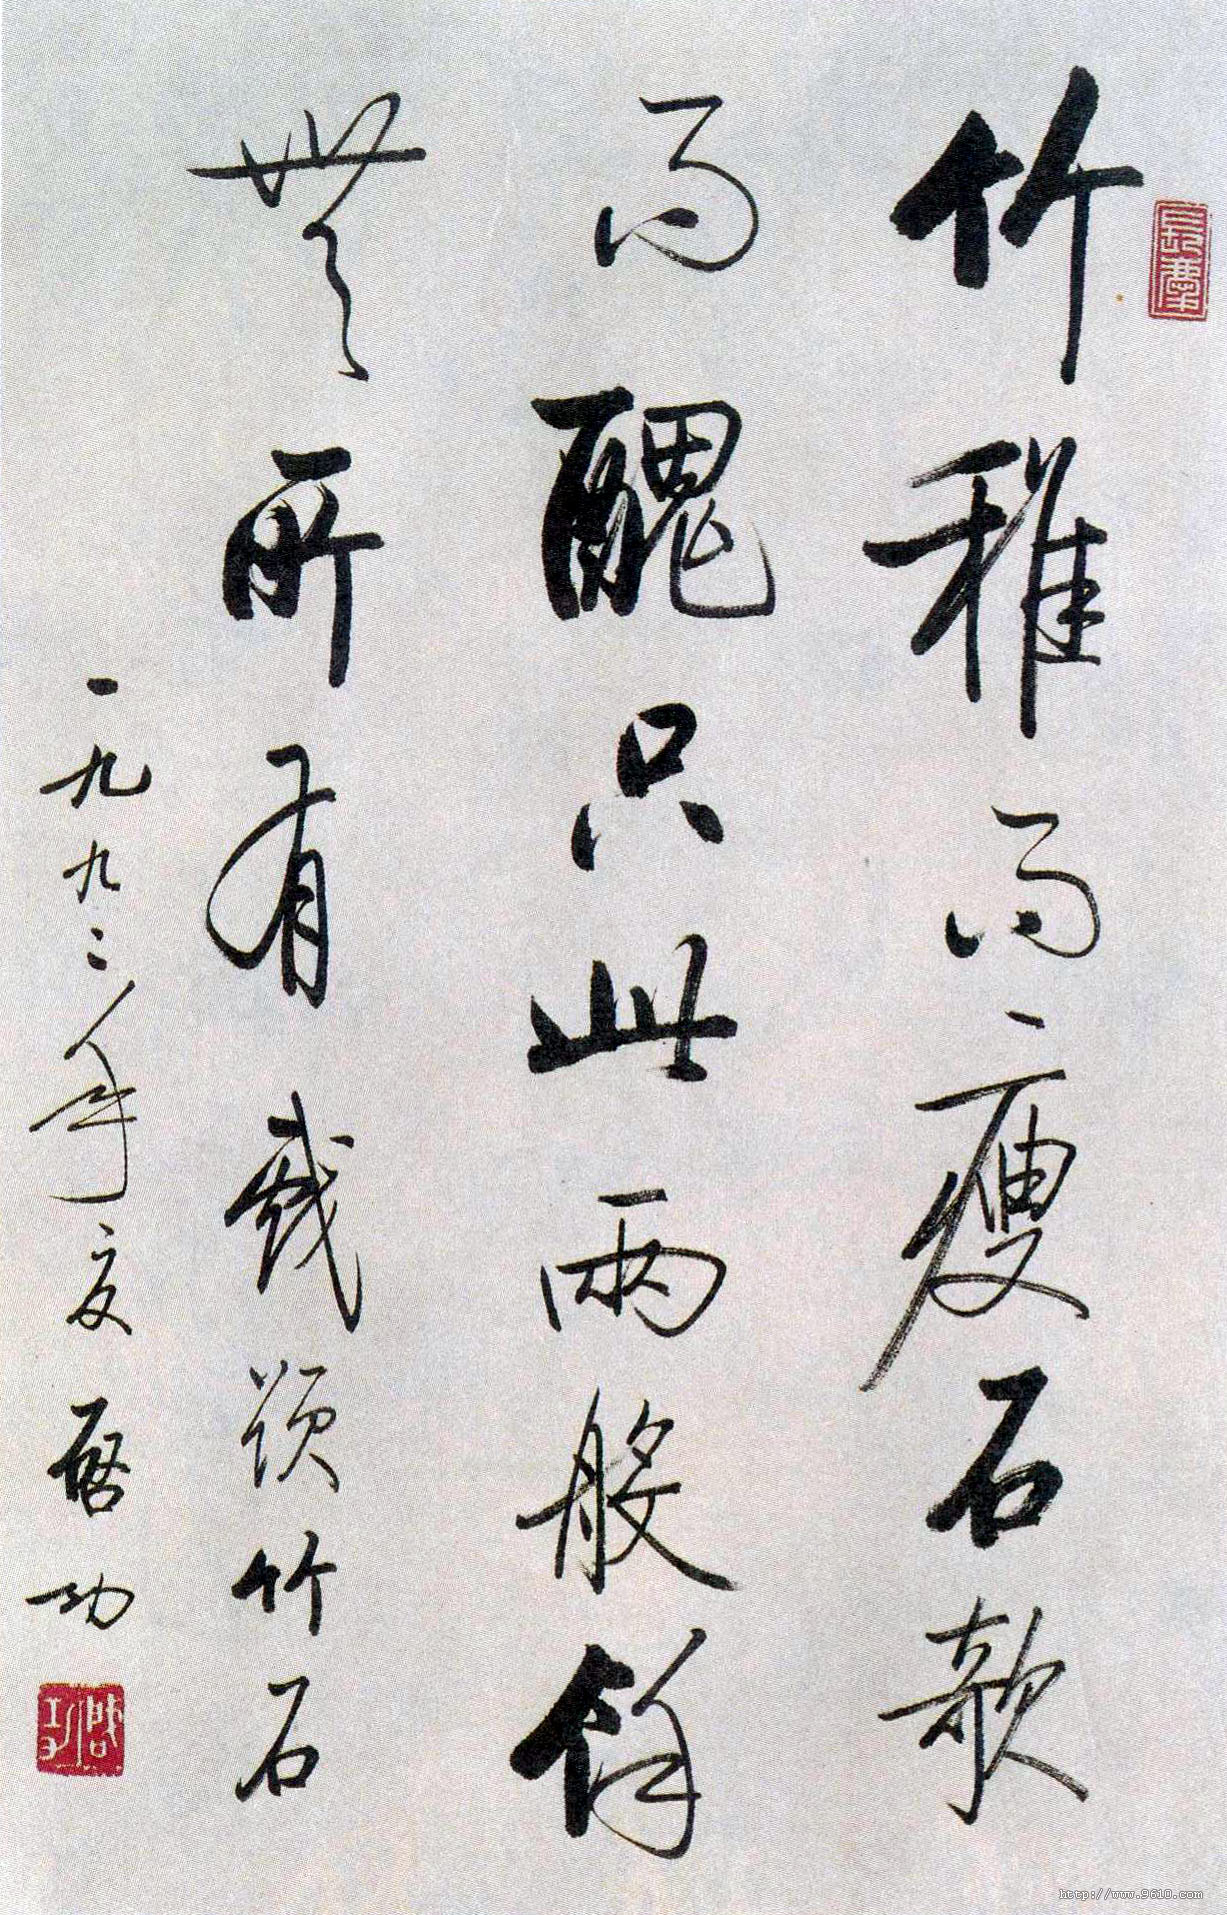 竹稚而瘦石欹
而醜只此兩般餘
無所有戲題竹石
一九九二年夏 啓功
啓功
http://www.9610.com